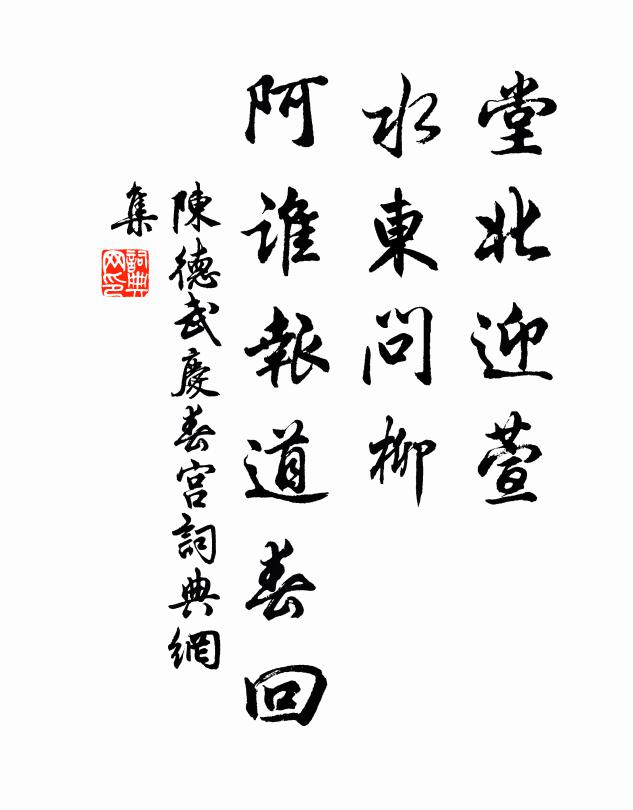 堂北迎萱
水東問柳
阿誰報道春回
陳德武慶春宮詞典網
集
詞典
网印